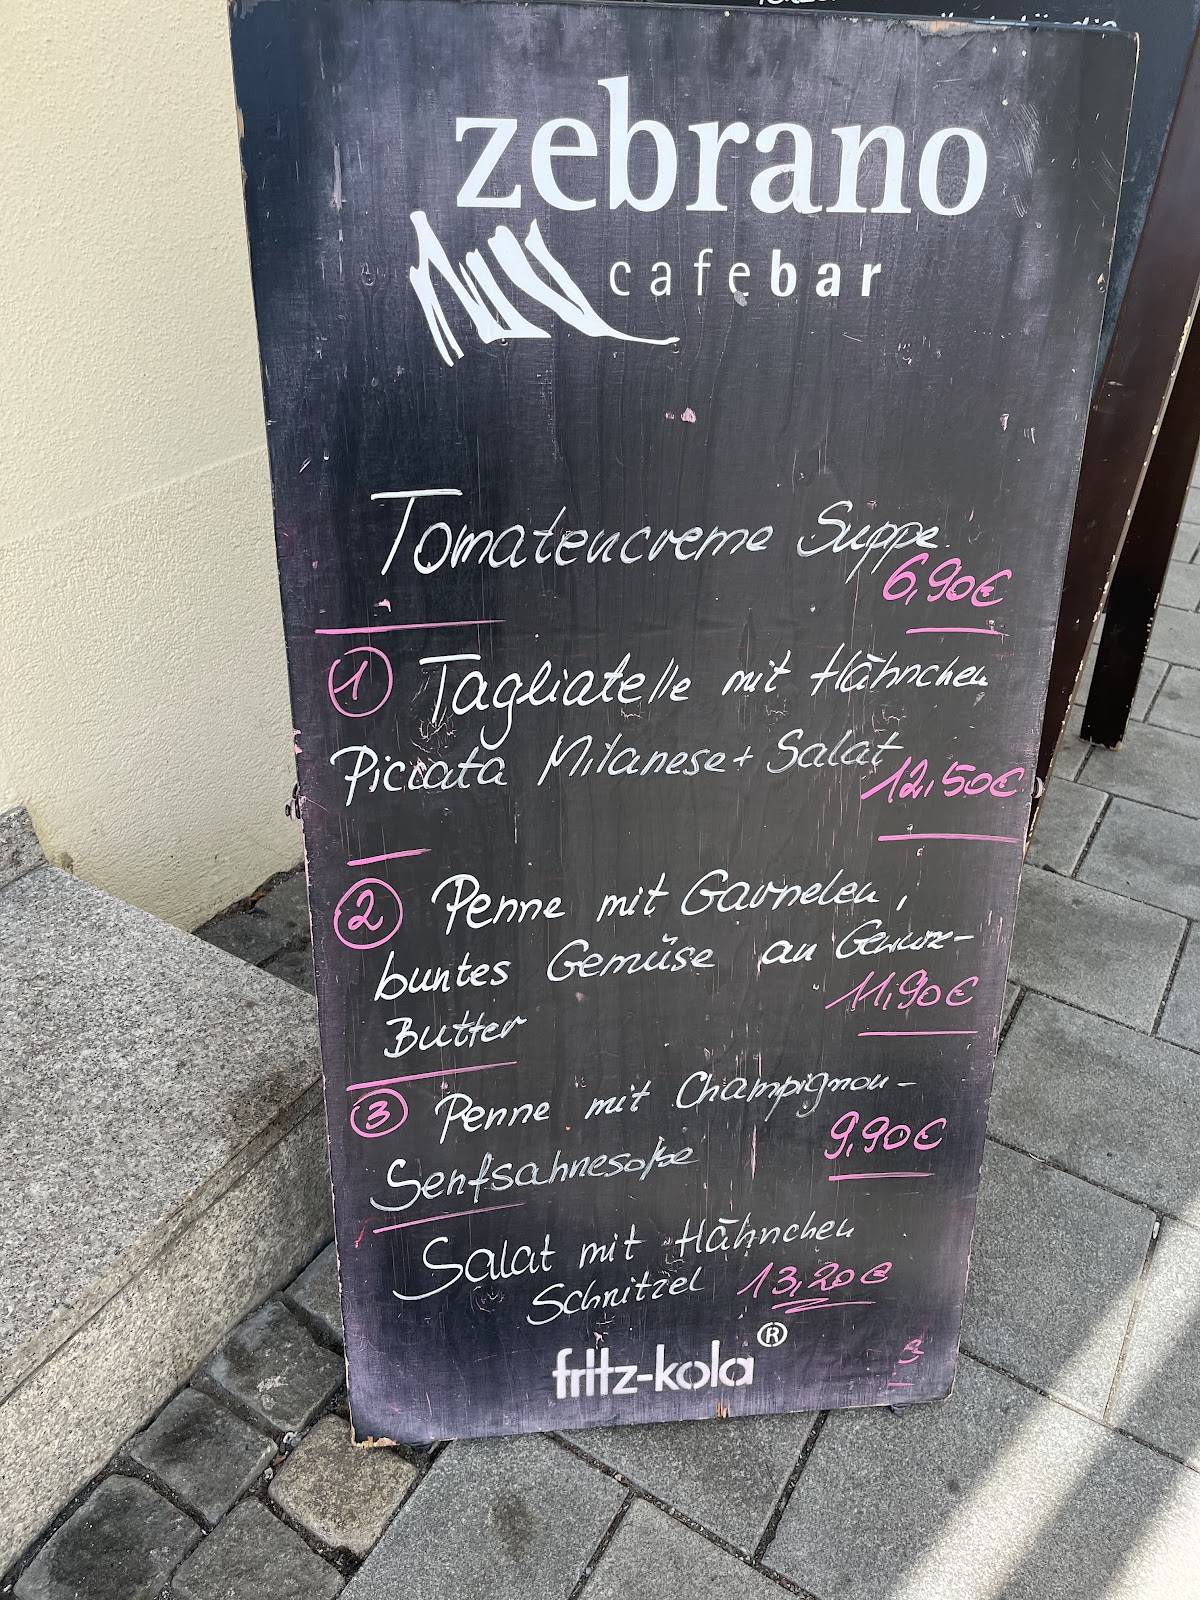 zebrano
cafebar
Tomatencreme Suppe
6,90€
1 Tagliatelle mit Hähnchen
Piccata Milanese + Salat
12,50€
2 Penne mit Garnelen,
buntes Gemüse an Gewürz-
11,90€
Butter
3 Penne mit Champignon-
9,90€
Senfsahnesoße
Salat mit Hähnchen
Schnitzel 13,20€
fritz-kola®